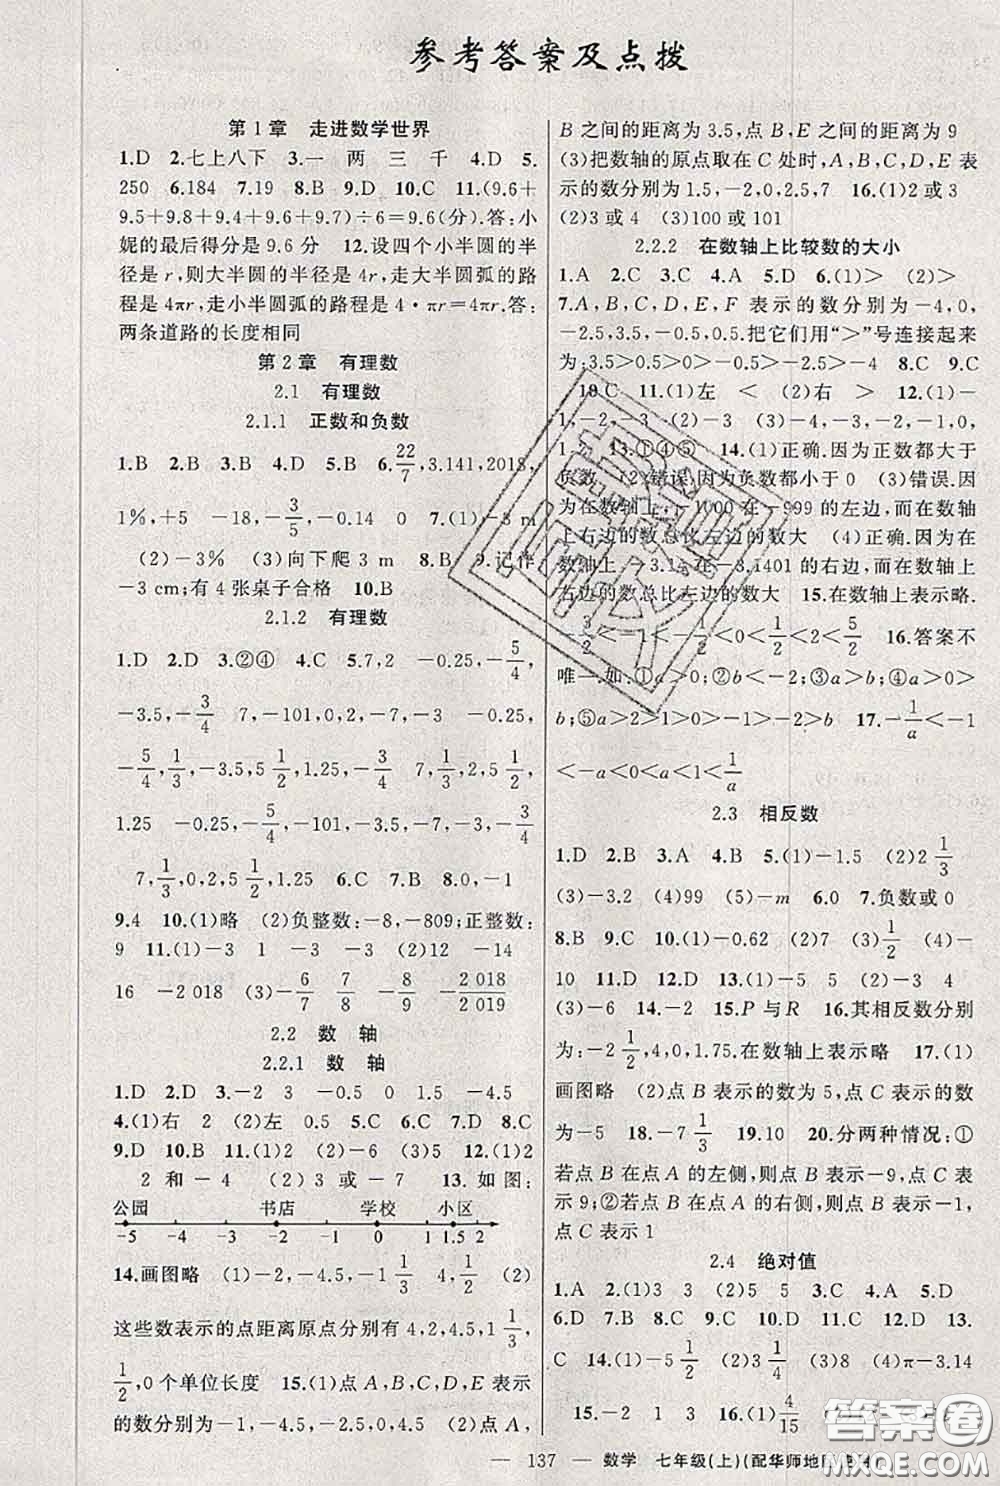 参考答案及点拨
第1章 走进数学世界
1.D 2.七上八下 3.一 两 三 千 4.D 5.
250 6.184 7.19 8.B 9.D 10.C 11.(9.6+
9.5+9.8+9.4+9.6+9.7)÷6=9.6(分).答:小
妮的最后得分是9.6分 12.设四个小半圆的半
径是r,则大半圆的半径是4r,走大半圆弧的路
程是4πr,走小半圆弧的路程是4·πr=4πr.答:
两条道路的长度相同
第2章 有理数
2.1 有理数
2.1.1 正数和负数
1.B 2.B 3.B 4.D 5.B 6.22/7,3.141,2018,
1%,+5 -18,-3/5,-0.14 0 7.(1)-3 m
(2)-3% (3)向下爬3 m 8.B 9.记作
-3 cm;有4张桌子合格 10.B
2.1.2 有理数
1.D 2.D 3.②④ 4.C 5.7,2 -0.25,-5/4,
-3.5,-3/4 7,-101,0,2,-7,-3 -0.25,
-5/4,1/3,-3.5,5 1/2,1.25,-3/4 7,1/3,2,5 1/2,
1.25 -0.25,-5/4,-101,-3.5,-7,-3,-3/4
7,1/3,0,2,5 1/2,1.25 6.C 7.B 8.0,-1
9.4 10.(1)略 (2)负整数:-8,-809;正整数:
9 11.(1)-3 1 -3 -3 (2)12 -14
16 -2 018 (3)-6/7 7/8 -8/9 -2 018/2 019
2.2 数 轴
2.2.1 数 轴
1.D 2.D 3.-2 3 -0.5 0 1.5 -4.5
4.(1)右 2 (2)左 0.5 5.C 6.C 7.D 8.C
9.D 10.B 11.(1)2 (2)6 (3)5 12.(1)2
2和-4 (2)3或-7 13.如图:
公园 书店 学校 小区
-5 -4 -3 -2 -1 0 1 1.5 2
14.画图略 (1)-2,-4.5,-1 1/3 4,1/2 (2)
这些数表示的点距离原点分别有4,2,4.5,1 1/3,
1/2,0个单位长度 15.(1)点A,B,C,D,E表示
的数分别为-1,-4.5,-2.5,0,4.5 (2)点A,
B之间的距离为3.5,点B,E之间的距离为9
(3)把数轴的原点取在C处时,A,B,C,D,E表
示的数分别为1.5,-2,0,2.5,7 16.(1)2或3
(2)3或4 (3)100或101
2.2.2 在数轴上比较数的大小
1.A 2.C 3.C 4.A 5.D 6.(1)> (2)>
7.A,B,C,D,E,F表示的数分别为-4,0,
-2.5,3.5,-0.5,0.5.把它们用“>”号连接起来
为:3.5>0.5>0>-0.5>-2.5>-4 8.C 9.C
10.C 11.(1)左 < (2)右 > 12.(1)-
1,-2,-3 (2)0 (3)-4,-3,-2,-1,0,
13.①④⑤ 14.(1)正确.因为正数都大于
负数 (2)错误.因为负数都小于0 (3)错误.因
为在数轴上,-1000在-999的左边,而在数轴
上右边的数总比左边的数大 (4)正确.因为在
数轴上-3.14在-3.1401的右边,而在数轴上
右边的数总比左边的数大 15.在数轴上表示略.
-3/2<-1<-1/2<0<1/2<2<5/2 16.答案不
唯一.如:①a>0;②b<-2;③a>b;④a>0>
b;⑤a>2>1>0>-1>-2>b 17.-1/a<-1
<-a<0<a<1<1/a
2.3 相反数
1.D 2.B 3.A 4.B 5.(1)-1.5 (2)2 1/3
(3)-3.2 (4)99 (5)-m 6.0 7.负数或0
8.B 9.C 10.(1)-0.62 (2)7 (3)1/2 (4)-
10 11.D 12.D 13.(1)-5 5 (2)-3 4
(3)-6 14.-2 15.P与R 16.其相反数分别
为:-2 1/2,4,0,1.75.在数轴上表示略 17.(1)
画图略 (2)点B表示的数为5,点C表示的数
为-5 18.-7 1/3 19.10 20.分两种情况:①
若点B在点A的左侧,则点B表示-9,点C表
示9;②若点B在点A的右侧,则点B表示-1,
点C表示1
2.4 绝对值
1.A 2.(1)3 3 (2)5 5 3.C 4.A 5.D
6.D 7.B 8.(1)> (2)< 9.C 10.D 12.D 13.
C 14.(1)-5 1/2 (2)3 1/4 (3)8 (4)π-3.14
15.-2 1 3 16.(1)4/15
— 137 — 数学 七年级(上)(配华师地
答案圈